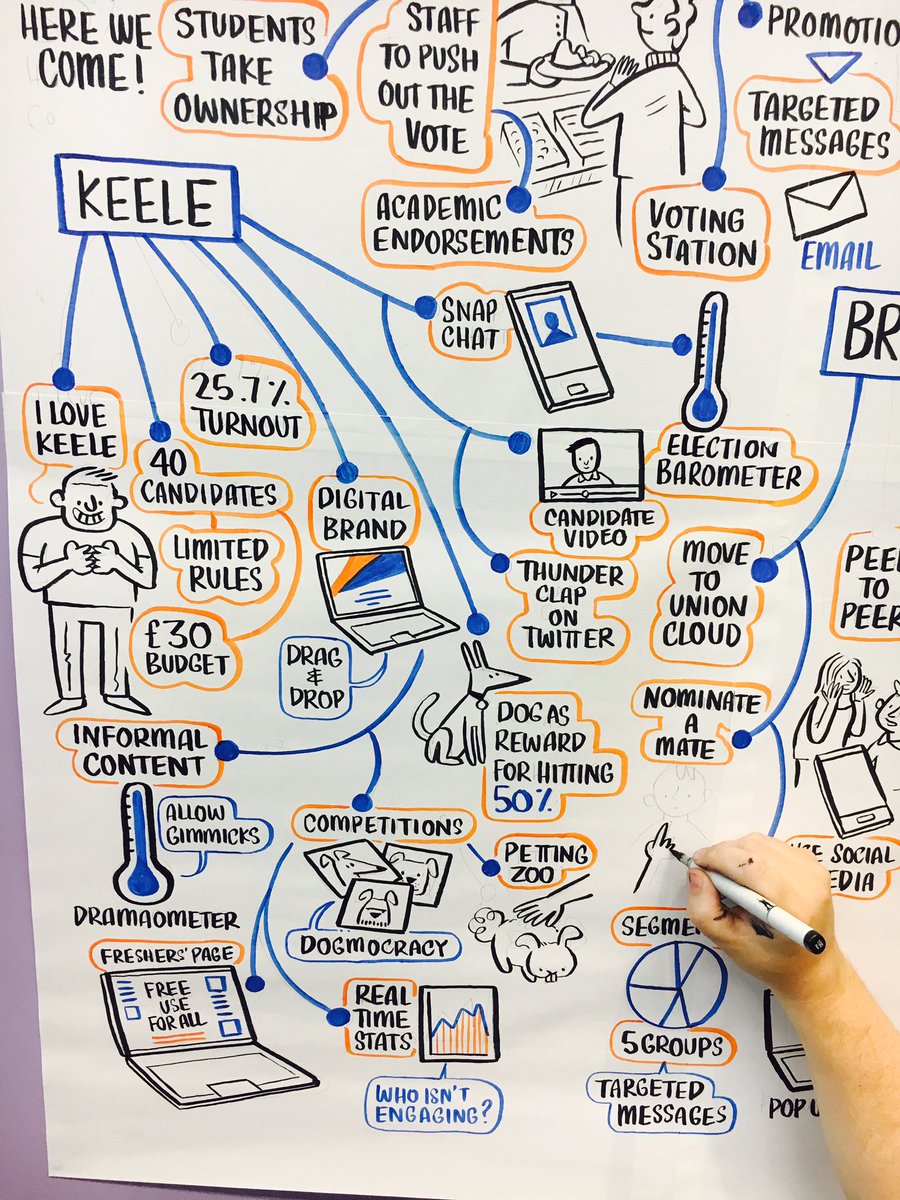 HERE WE
COME!
STUDENTS
TAKE
OWNERSHIP
STAFF
TO PUSH
OUT THE
VOTE
ACADEMIC
ENDORSEMENTS
VOTING
STATION
PROMOTIO
TARGETED
MESSAGES
EMAIL
KEELE
I LOVE
KEELE
40
CANDIDATES
LIMITED
RULES
£30
BUDGET
25.7%
TURNOUT
DIGITAL
BRAND
DRAG
&
DROP
SNAP
CHAT
ELECTION
BAROMETER
CANDIDATE
VIDEO
THUNDER
CLAP
ON
TWITTER
DOG AS
REWARD
FOR HITTING
50%
INFORMAL
CONTENT
ALLOW
GIMMICKS
DRAMAOMETER
COMPETITIONS
DOGMOCRACY
PETTING
ZOO
FRESHERS' PAGE
FREE
USE
FOR ALL
REAL
TIME
STATS
WHO ISN'T
ENGAGING?
BR
MOVE
TO
UNION
CLOUD
NOMINATE
A
MATE
PEER
TO
PEER
SOCIAL
EDIA
SEGME
5 GROUPS
TARGETED
MESSAGES
POP U